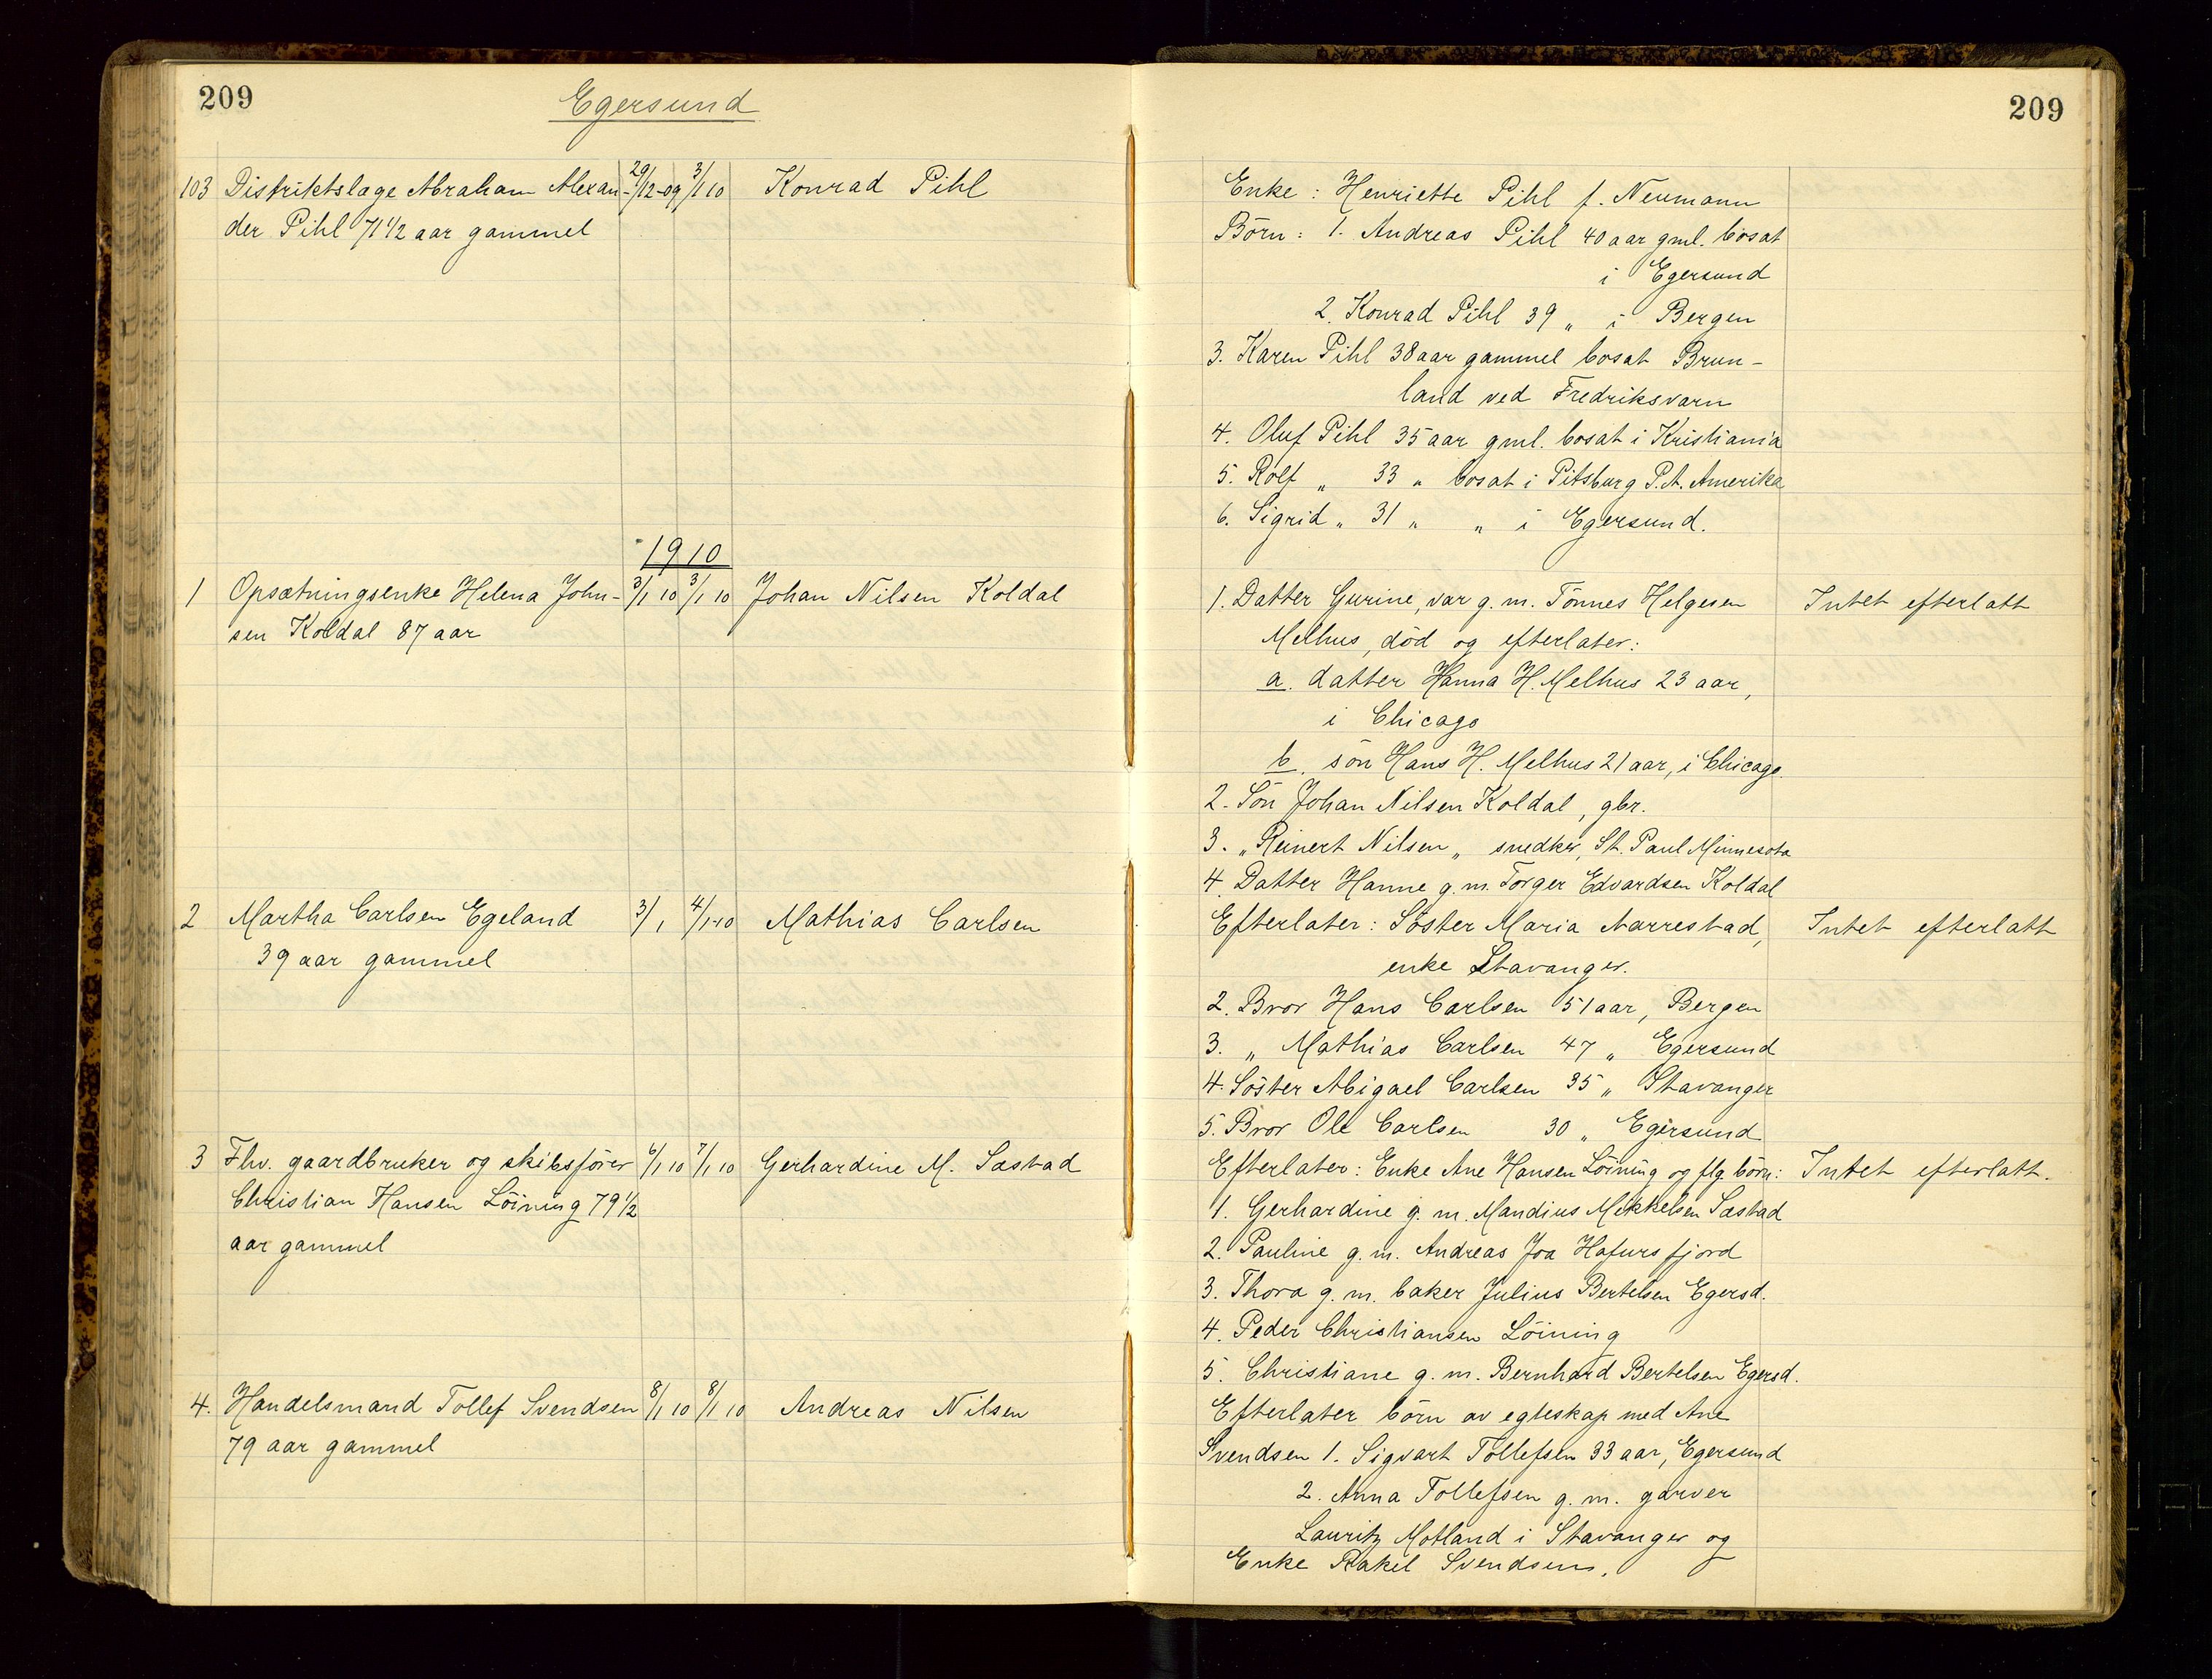 209
Egersund
103 Distriktslæge Abraham Alexan- 29/12-09 3/1 10 Konrad Pihl
der Pihl 71 1/2 aar gammel
1910
1 Opsætningsenke Helena John- 3/1 10 3/1 10 Johan Nilsen Koldal
sen Koldal 87 aar
2 Martha Carlsen Egeland 3/1 4/1-10 Mathias Carlsen
39 aar gammel
3 Fhv. gaardbruker og skibsfører 6/1 10 7/1 10 Gerhardine M. Sæstad
Christian Hansen Löining 79 1/2
aar gammel
4. Handelsmand Tollef Svendsen 8/1 10 8/1 10 Andreas Nilsen
79 aar gammel
209
Enke: Henriette Pihl f. Neumann
Börn: 1. Andreas Pihl 40 aar gml. bosat
i Egersund
2. Konrad Pihl 39 „ i Bergen
3. Karen Pihl 38 aar gammel bosat Brun-
land ved Fredriksvarn
4. Oluf Pihl 35 aar gml. bosat i Kristiania
5. Rolf „ 33 „ bosat i Pitsburg P.A. Amerika
6. Sigrid „ 31 „ „ i Egersund.
1. Datter Gurine, var g. m. Tönnes Helgesen Intet efterlatt
Melhus, död og efterlater:
a. datter Hanna H. Melhus 23 aar,
i Chicago
b. sön Hans H. Melhus 21 aar, i Chicago.
2. Sön Johan Nilsen Koldal, gbr.
3. „ Reinert Nilsen „ snedker, St. Paul Minnesota
4. Datter Hanne g. m. Torger Edvardsen Koldal
Efterlater: Söster Maria Narrestad, Intet efterlatt
enke Stavanger.
2. Bror Hans Carlsen 51 aar, Bergen
3. „ Mathias Carlsen 47 „ Egersund
4. Söster Abigael Carlsen 35 „ Stavanger
5. Bror Ole Carlsen 30 „ Egersund
Efterlater: Enke Ane Hansen Löining og flg. börn: Intet efterlatt.
1. Gerhardine g. m. Mandius Mikkelsen Sæstad
2. Pauline g. m. Andreas Joa Hafursfjord
3. Thora g. m. baker Julius Bertelsen Egersd.
4. Peder Christiansen Löining
5. Christiane g. m. Bernhard Bertelsen Egersd.
Efterlater börn av egteskap med Ane
Svendsen 1. Sigvart Tollefsen 33 aar, Egersund
2. Anna Tollefsen g. m. garver
Lauritz Motland i Stavanger og
Enke Rakel Svendsen.